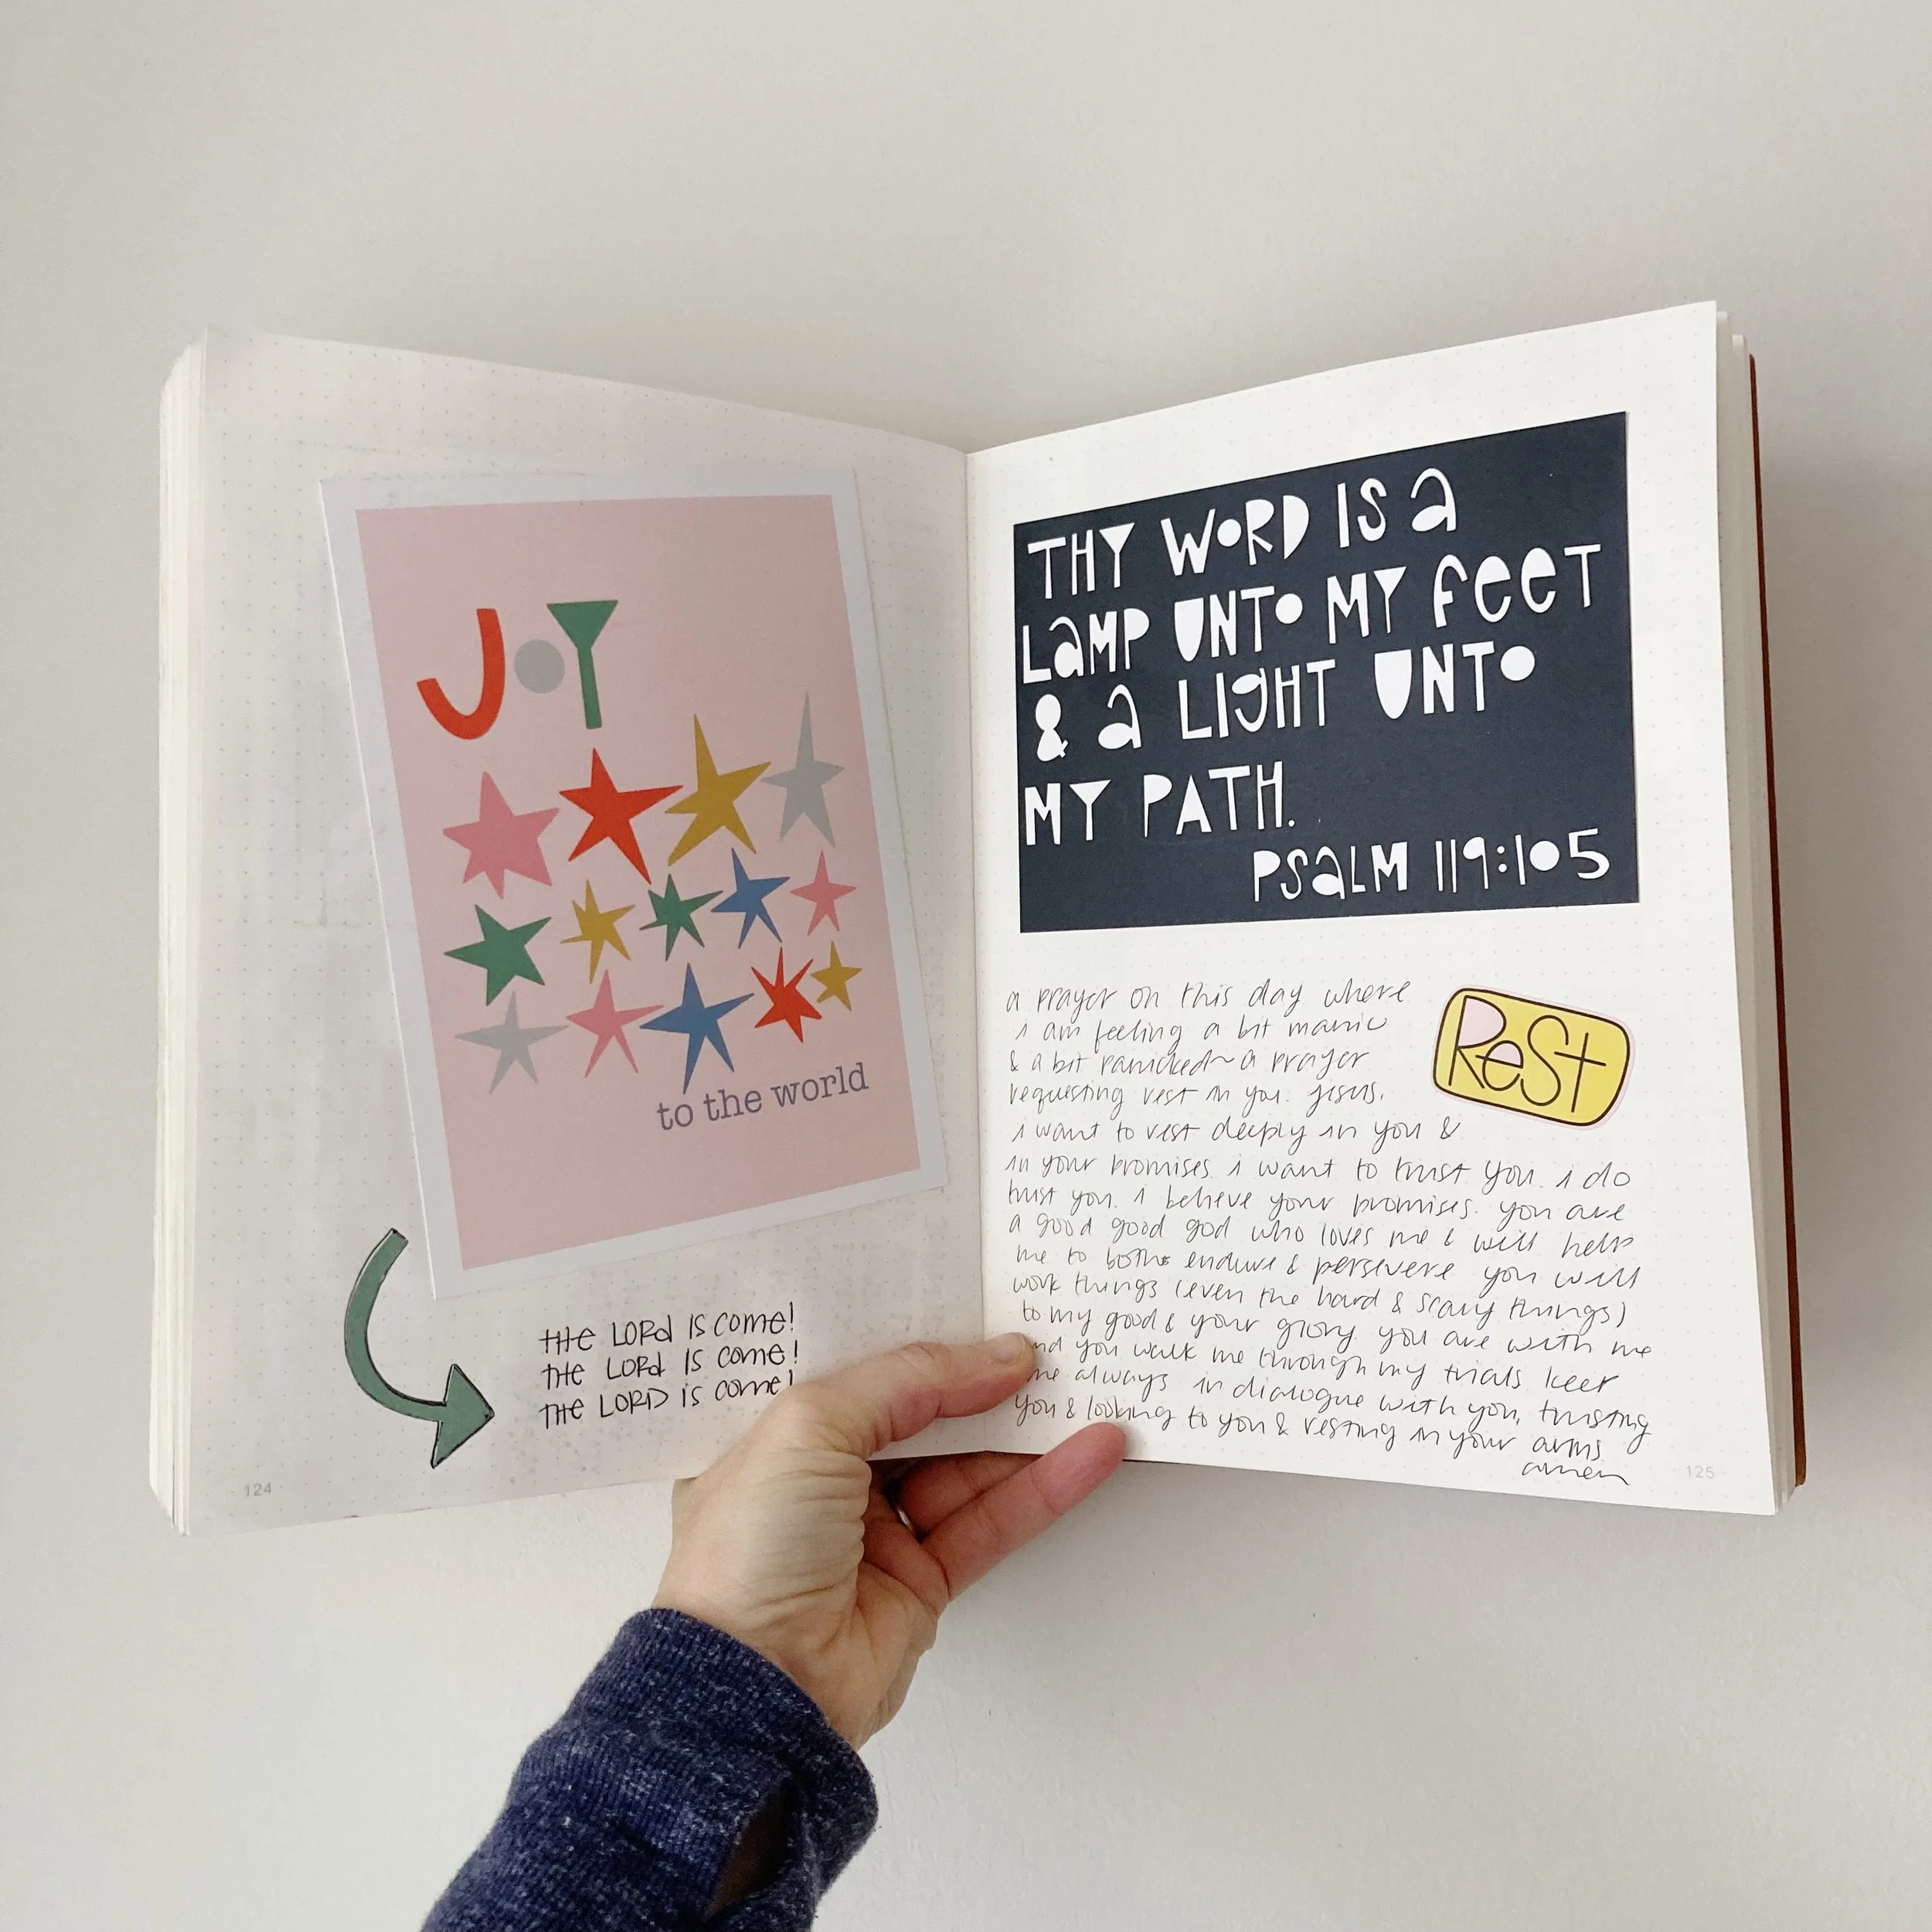 JOY
to the world
THE LORD IS COME!
THE LORD IS COME!
THE LORD IS COME!
124
THY WORD IS A
LAMP UNTO MY FEET
& A LIGHT UNTO
MY PATH.
PSALM 119:105
a prayer on this day where
i am feeling a bit manic
& a bit panicked~ a prayer
requesting rest in you. jesus,
REST
i want to rest deeply in you &
in your promises. i want to trust you. i do
trust you. i believe your promises. you are
a good good god who loves me & will help
me to both endure & persevere. you will
work things (even the hard & scary things)
to my good & your glory. you are with me
and you walk me through my trials. keep
me always in dialogue with you, trusting
you & looking to you & resting in your arms
amen
125